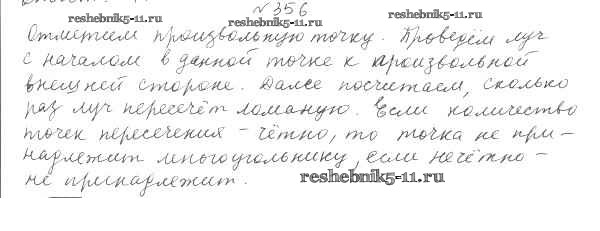 №356
reshebnik5-11.ru reshebnik5-11.ru reshebnik5-11.ru
Отметим произвольную точку. Проведём луч
с началом в данной точке к произвольной
внешней стороне. Далее посчитаем, сколько
раз луч пересечёт ломаную. Если количество
точек пересечения - чётно, то точка не при-
надлежит многоугольнику, если нечётно -
не принадлежит.
reshebnik5-11.ru